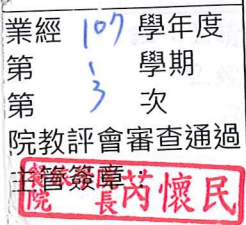 業經107學年度
第1學期
第3次
院教評會審查通過
主管簽章:
餐旅學院院長芮懷民